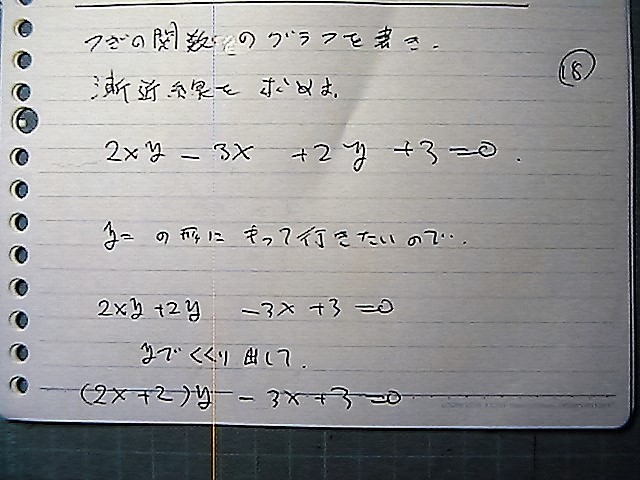 つぎの関数のグラフを書き.
漸近線を求めよ.
⑱
2xy - 3x + 2y + 3 = 0.
y= の形にもって行きたいので..
2xy + 2y - 3x + 3 = 0
yでくくり出して.
(2x + 2)y - 3x + 3 = 0